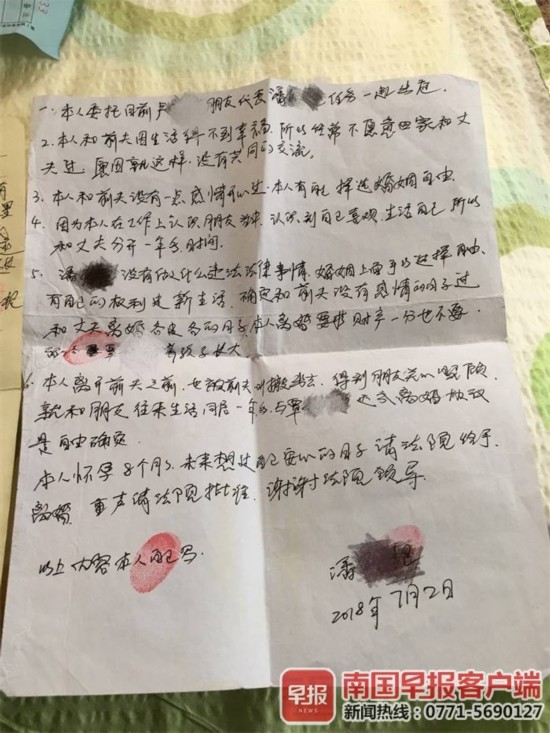 一. 本人委托目前卢 朋友代表潘 任务一起出庭.
2. 本人和前夫因生活得不到幸福, 所以经常不愿意回家和丈
夫过, 原因就这样, 没有共同的交流。
3. 本人和前夫没有一点感情可以过. 本人有自己择选婚姻自由.
4. 因为本人在工作上认识朋友 认识到自己喜观.生活自己 所以
和丈夫分开一年多时间.
5. 潘 没有做什么违法法律事情. 婚姻上 可以选择自由.
有自己的权利过新生活. 确定和前夫没有感情的日子过
和丈夫离婚各过各的日子.本人离婚要求财产一分也不要.
孩子长大
6. 本人离开前夫之前, 前夫 搬出去. 得到朋友关心照顾
就和朋友往来生活同居一年多.与覃 离婚
是自由确定.
本人怀孕8个月了. 未来想过自己安心的日子 请法院给予
离婚. 声请法院批准. 谢谢法院领导.
以上内容本人自己写.
潘
2018年7月2日
早报
NEWS
南国早报客户端
新闻热线：0771-5690127